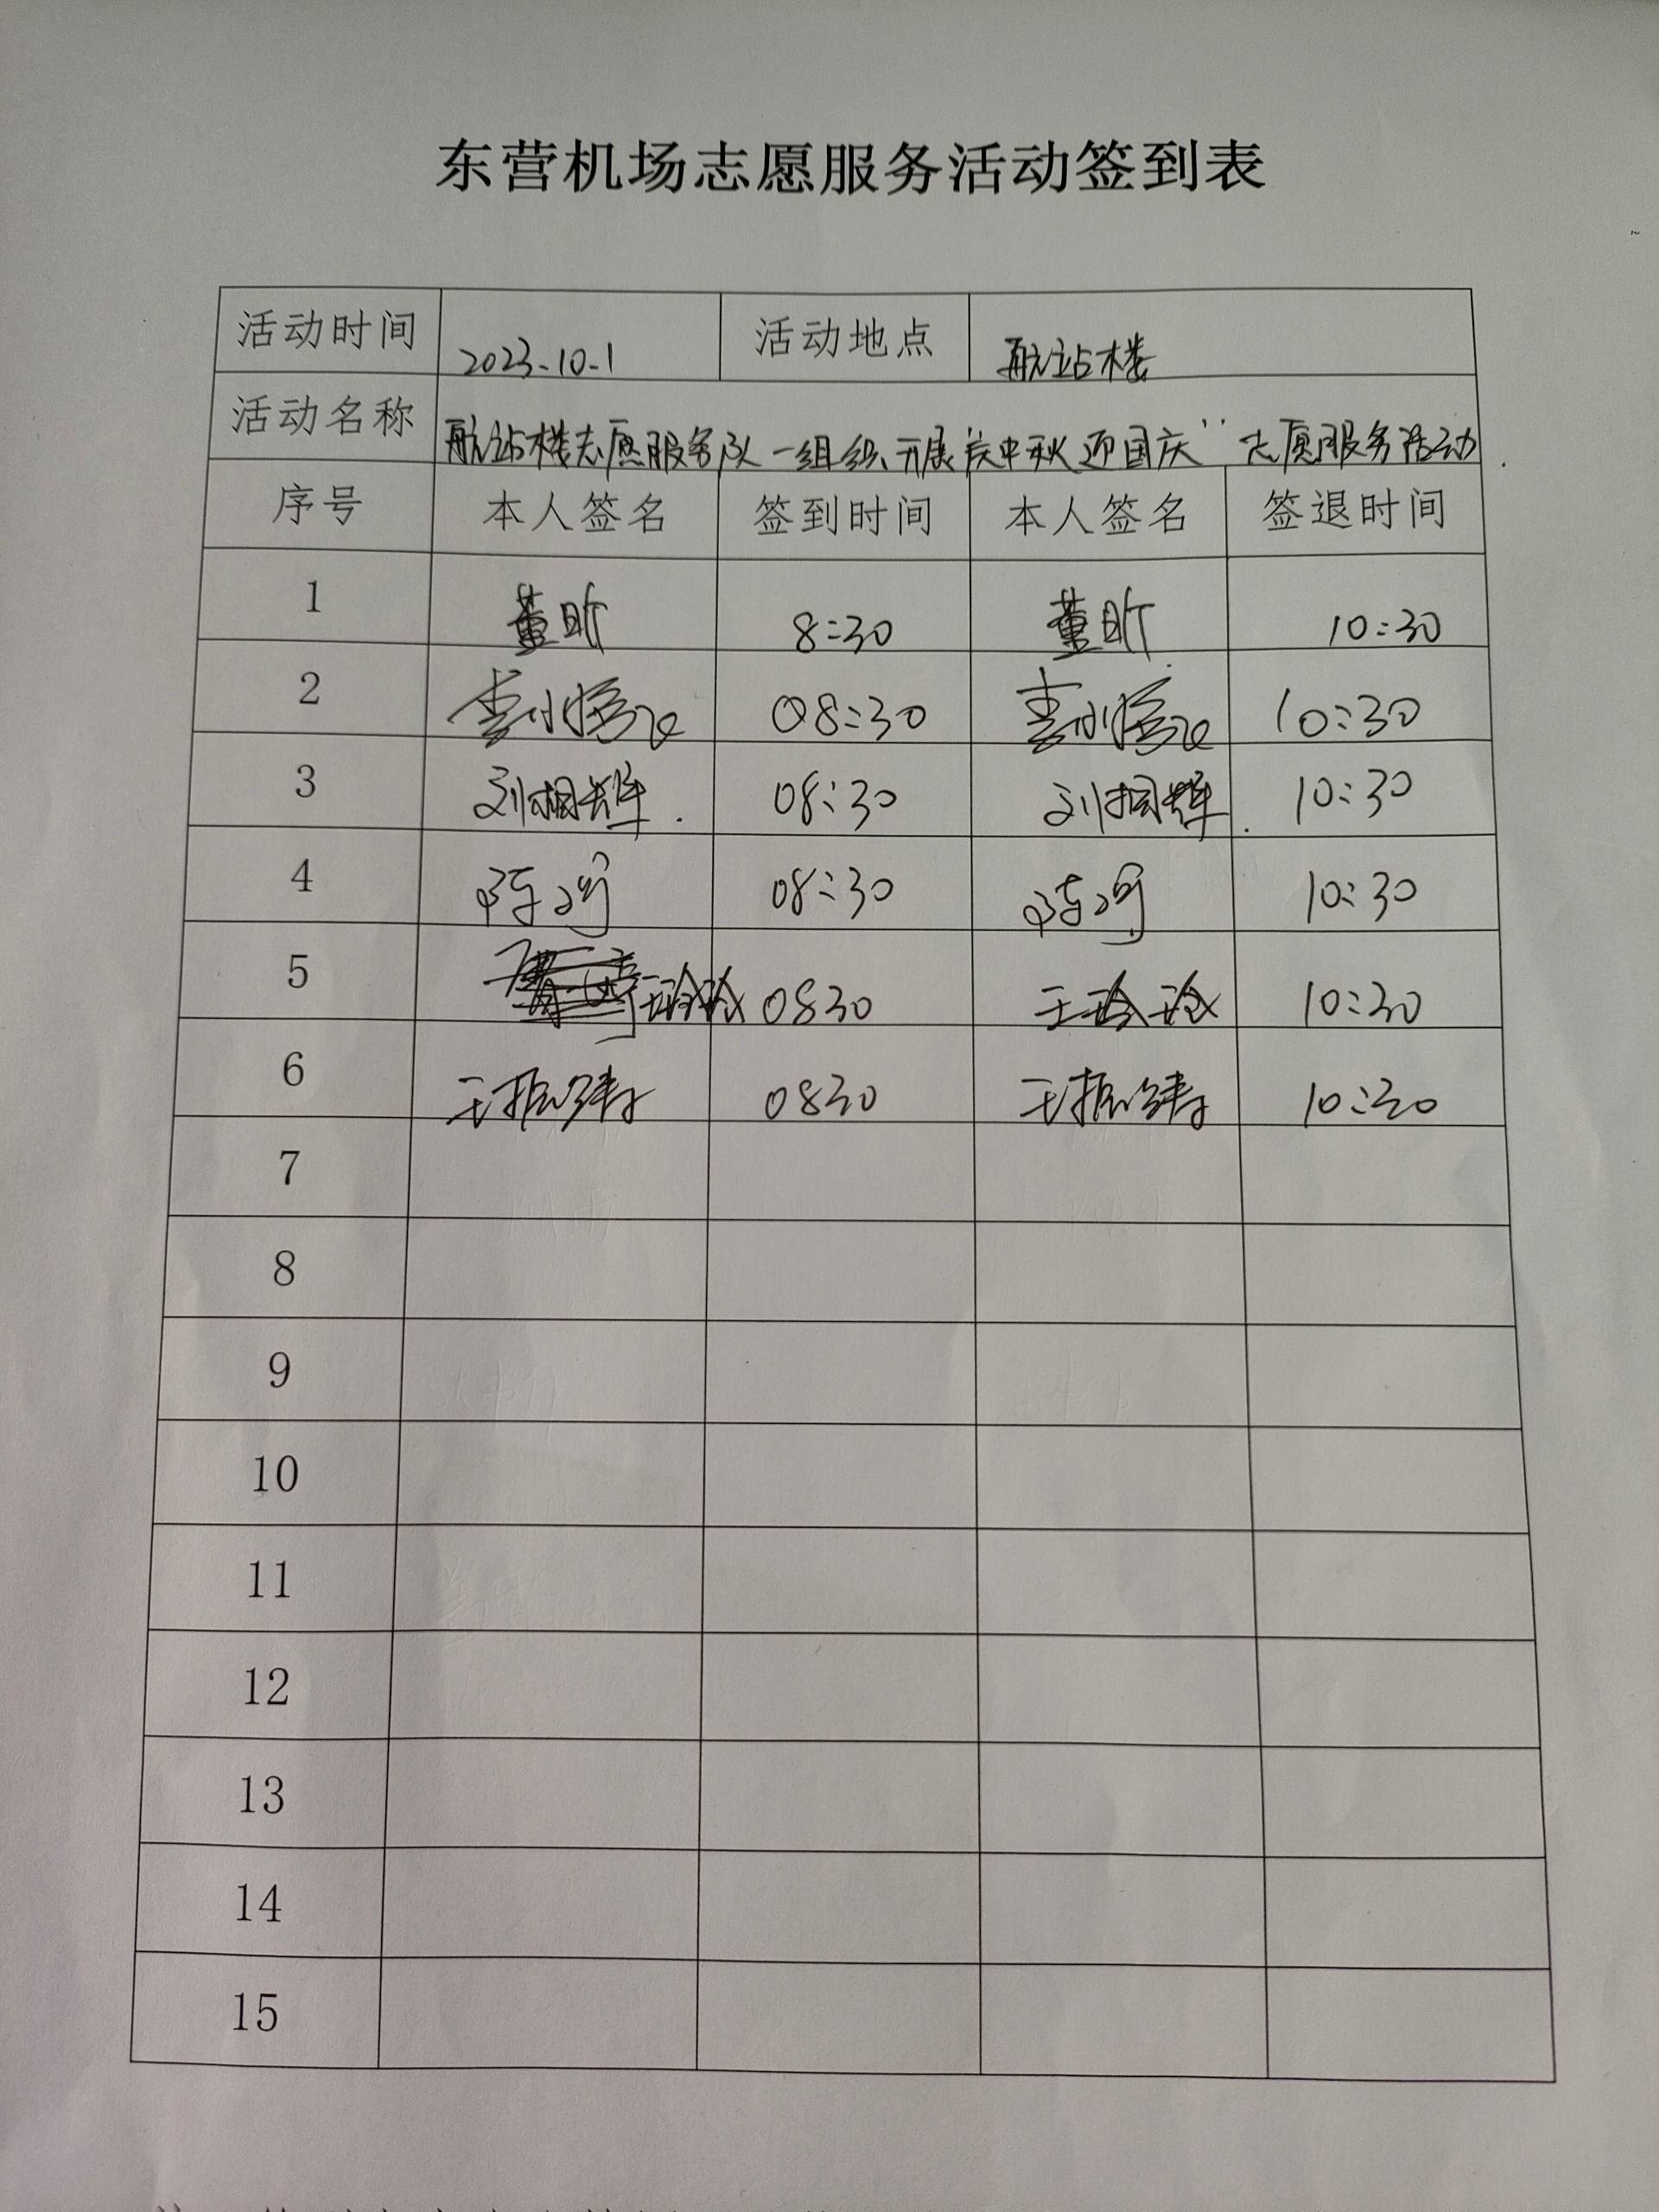 东营机场志愿服务活动签到表
活动时间 2023-10-1 活动地点 航站楼
活动名称 航站楼志愿服务队一组组织开展"庆中秋 迎国庆"志愿服务活动.
序号 本人签名 签到时间 本人签名 签退时间
1 董昕 8:30 董昕 10:30
2 08:30 10:30
3 刘相辉. 08:30 刘相辉. 10:30
4 08:30 10:30
5 王玲玲 0830 王玲玲 10:30
6 0830 10:30
7
8
9
10
11
12
13
14
15